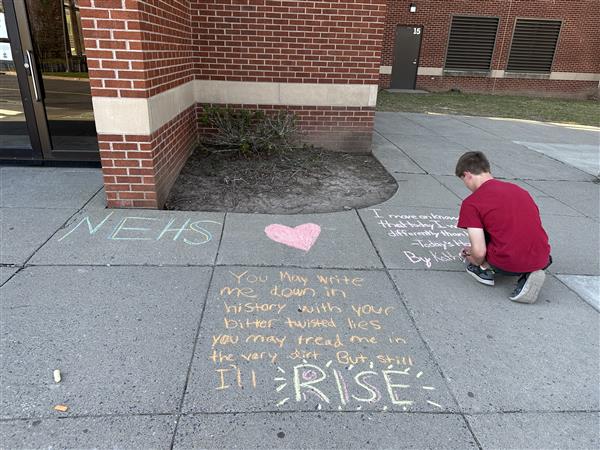 15
NEHS
I move on know
that today I wi
differently than
-Today's He
By Kath
You May write
me down in
history with your
bitter twisted lies
you may tread me in
the very dirt But still
I'll RISE